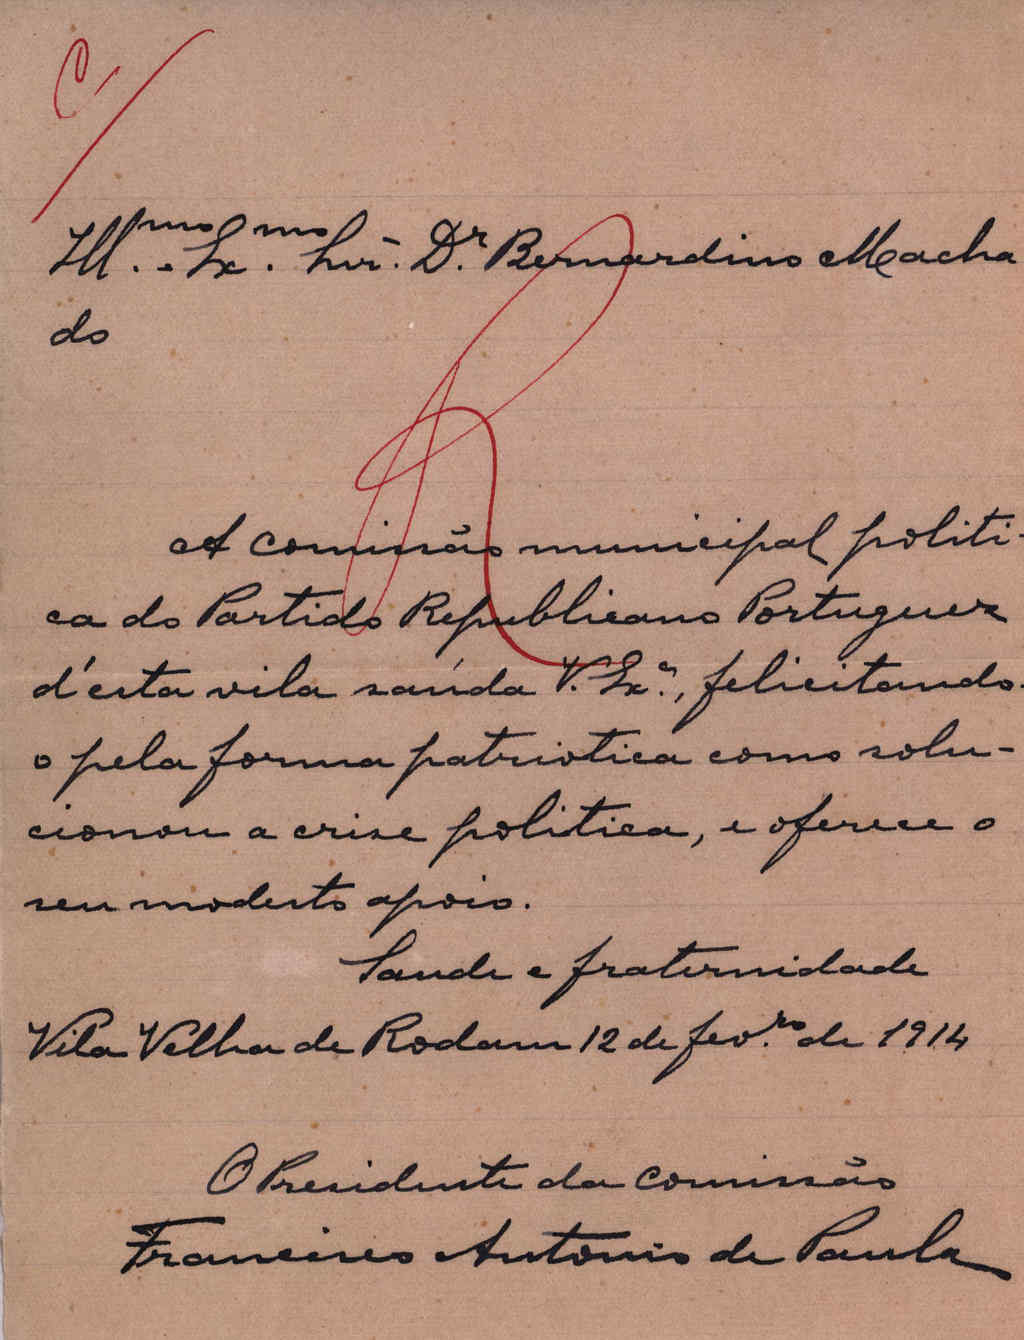 C/
Ill.mo e Ex.mo Snr. Dr. Bernardino Macha
do
R
A comissão municipal politi-
ca do Partido Republicano Portuguez
d'esta vila saúda V. Ex.ª, felicitando-
o pela forma patriotica como solu-
cionou a crise politica, e oferece o
seu modesto apoio.
Saude e fraternidade
Vila Velha de Rodam 12 de fev.ro de 1914
O Presidente da comissão
Francisco Antonio de Paula